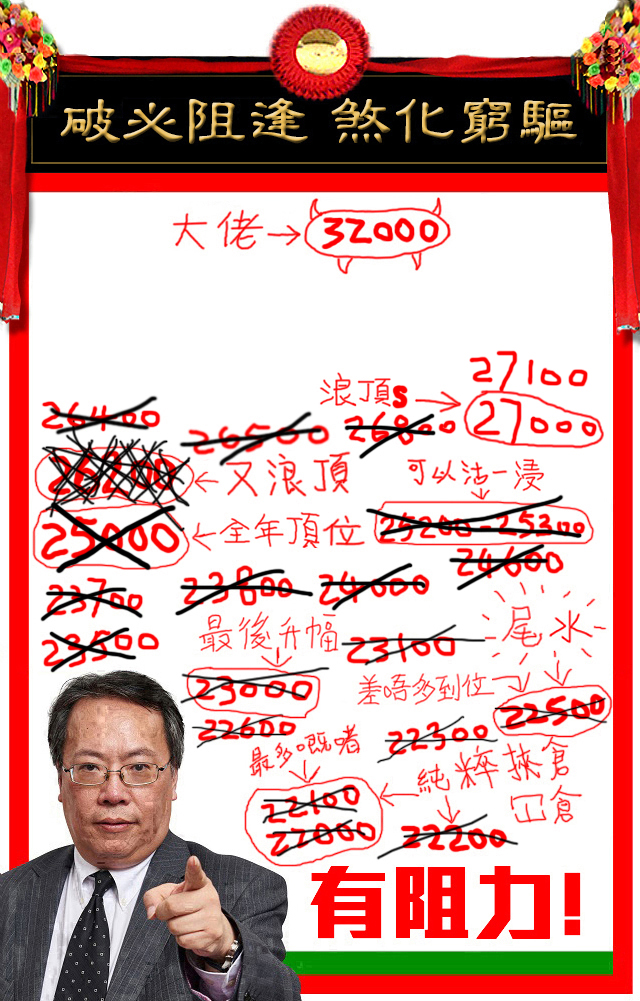 驅窮化煞 逢阻必破
大佬→32000
27100
浪頂s→27000
26400
26500
26800
26200←又浪頂
可以沽一浸
25000←全年頂位
25200-25300
24600
23700
23800
24000
23500
最後升幅
23100
尾水
23000
差唔多到位
22500
22600
22300
最多嘅者
純粹挾倉
冚倉
22100
22000
22200
有阻力!